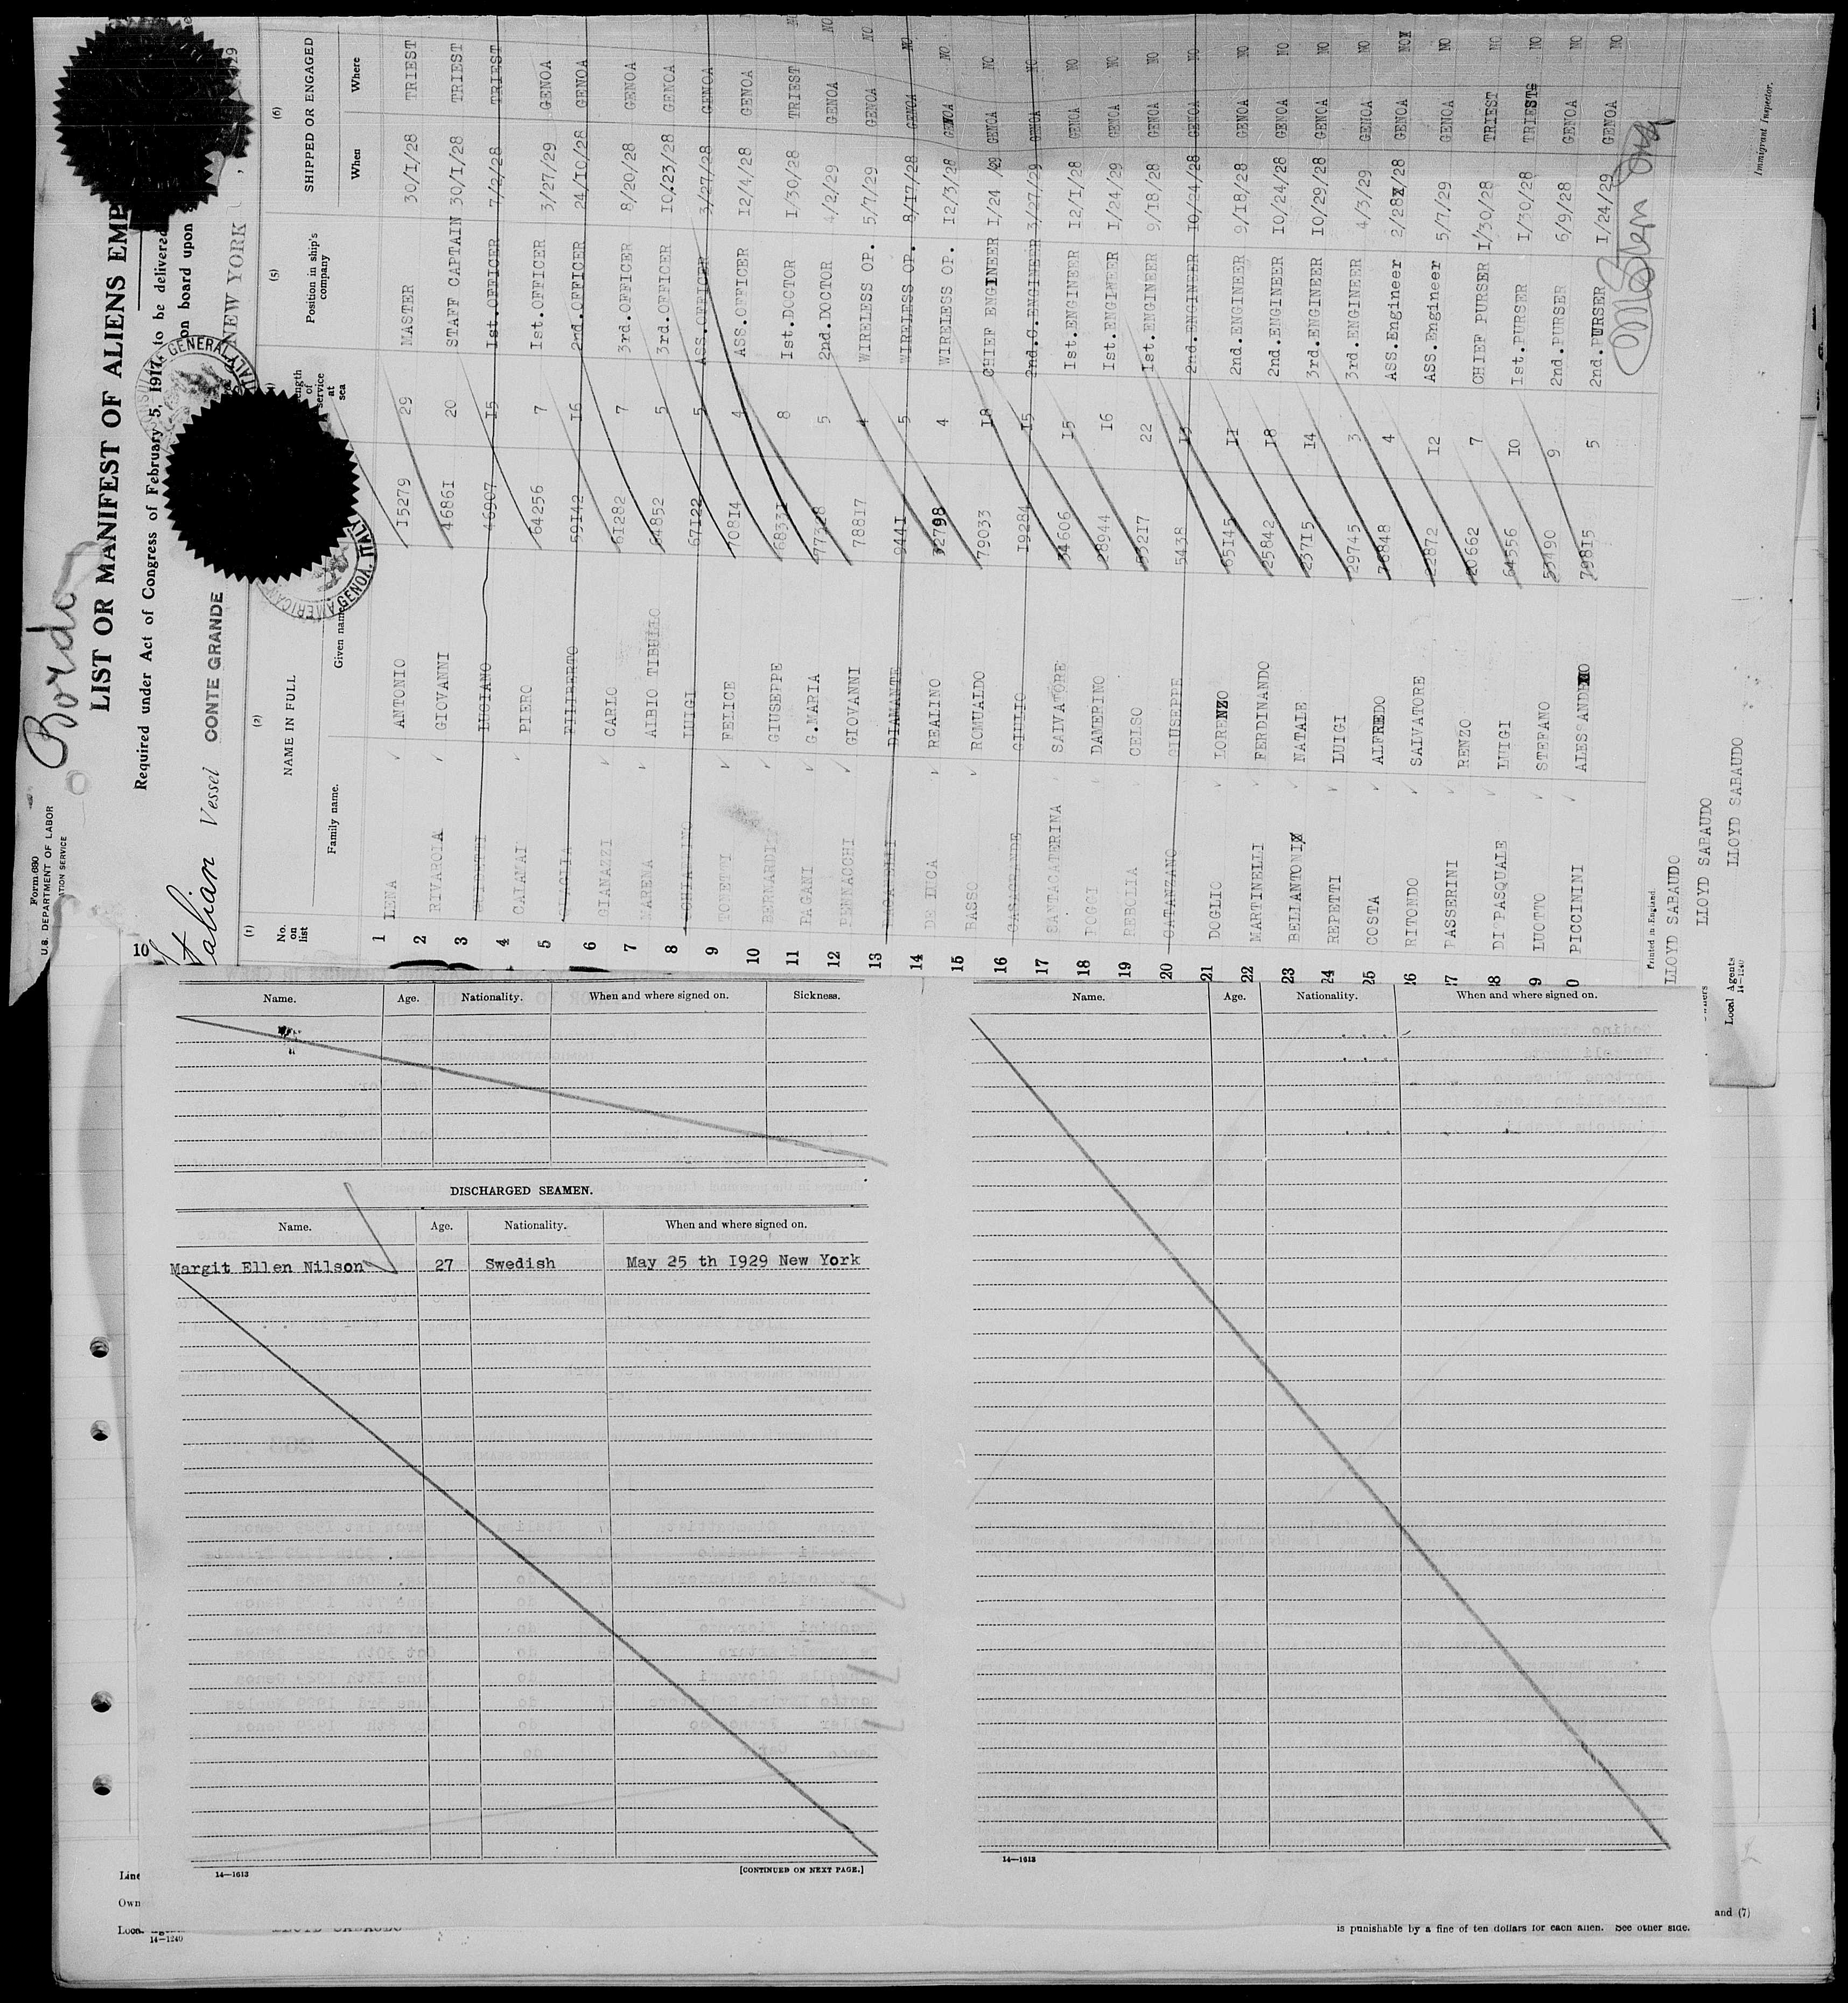 Bordo
Form 680
U.S. DEPARTMENT OF LABOR
ATION SERVICE
LIST OR MANIFEST OF ALIENS EMP
Required under Act of Congress of February 5, 1917, to be delivered
Italian Vessel CONTE GRANDE
on board upon
NEW YORK
GENERAL
AMERICAN
GENOA, ITALY
10
(1) (2) (5) (6)
No. on list
NAME IN FULL
Family name. Given name
service at sea
Position in ship's company
SHIPPED OR ENGAGED
When Where
1 LENA ANTONIO 15279 29 MASTER 30/1/28 TRIEST
2 RIVAROLA GIOVANNI 46861 20 STAFF CAPTAIN 30/1/28 TRIEST
3 LUCIANO 46907 15 1st.OFFICER 7/2/28 TRIEST
4 CALAMAI PIERO 64256 7 1st.OFFICER 3/27/29 GENOA
5 FILIBERTO 59142 16 2nd.OFFICER 24/10/28 GENOA
6 GIANAZZI CARLO 61282 7 3rd.OFFICER 8/20/28 GENOA
7 MARENA ALBIO TIBULLO 64852 5 3rd.OFFICER 10/23/28 GENOA
8 SCHIAFFINO LUIGI 67122 5 ASS.OFFICER 3/27/28 GENOA
9 TONETTI FELICE 70814 4 ASS.OFFICER 12/4/28 GENOA
10 BERNARDIS GIUSEPPE 68331 8 1st.DOCTOR 1/30/28 TRIEST
11 PAGANI G.MARIA 77328 5 2nd.DOCTOR 4/2/29 GENOA NO
12 PENNACCHI GIOVANNI 78817 4 WIRELESS OP. 5/7/29 GENOA NO
13 DIAMANTE 9441 5 WIRELESS OP. 8/17/28 GENOA NO
14 DE LUCA REALINO 32798 4 WIRELESS OP. 12/3/28 GENOA NO
15 BASSO ROMUALDO 79033 18 CHIEF ENGINEER 1/24/29 GENOA NO
16 CASAGRANDE GIULIO 19284 15 2nd.C.ENGINEER 3/27/29 GENOA NO
17 SANTACATERINA SALVATORE 34606 15 1st.ENGINEER 12/1/28 GENOA NO
18 POGGI DAMERINO 28944 16 1st.ENGINEER 1/24/29 GENOA NO
19 REBOLIA CELSO 53217 22 1st.ENGINEER 9/18/28 GENOA NO
20 CATANZANO GIUSEPPE 5438 13 2nd.ENGINEER 10/24/28 GENOA NO
21 DOGLIO LORENZO 65145 11 2nd.ENGINEER 9/18/28 GENOA NO
22 MARTINELLI FERDINANDO 25842 18 2nd.ENGINEER 10/24/28 GENOA NO
23 BELLANTONI NATALE 23715 14 3rd.ENGINEER 10/29/28 GENOA NO
24 REPETTI LUIGI 29745 3 3rd.ENGINEER 4/3/29 GENOA NO
25 COSTA ALFREDO 76848 4 ASS.Engineer 2/28/28 GENOA NO
26 RITONDO SALVATORE 22872 12 ASS.Engineer 5/7/29 GENOA NO
27 PASSERINI RENZO 20662 7 CHIEF PURSER 1/30/28 TRIEST NO
28 DI PASQUALE LUIGI 64556 10 1st.PURSER 1/30/28 TRIEST NO
9 LUOTTO STEFANO 53490 9 2nd.PURSER 6/9/28 GENOA NO
0 PICCININI ALESSANDRO 79815 5 2nd.PURSER 1/24/29 GENOA NO
Immigrant Inspector.
Printed in England
LLOYD SABAUDO
LLOYD SABAUDO
Local Agents LLOYD SABAUDO
14-1240
Name. Age. Nationality. When and where signed on. Sickness.
DISCHARGED SEAMEN.
Name. Age. Nationality. When and where signed on.
Margit Ellen Nilson 27 Swedish May 25 th 1929 New York
14—1613
[CONTINUED ON NEXT PAGE.]
Name. Age. Nationality. When and where signed on.
14—1613
Line
Own
Loca
14—1240
and (7)
is punishable by a fine of ten dollars for each alien. See other side.